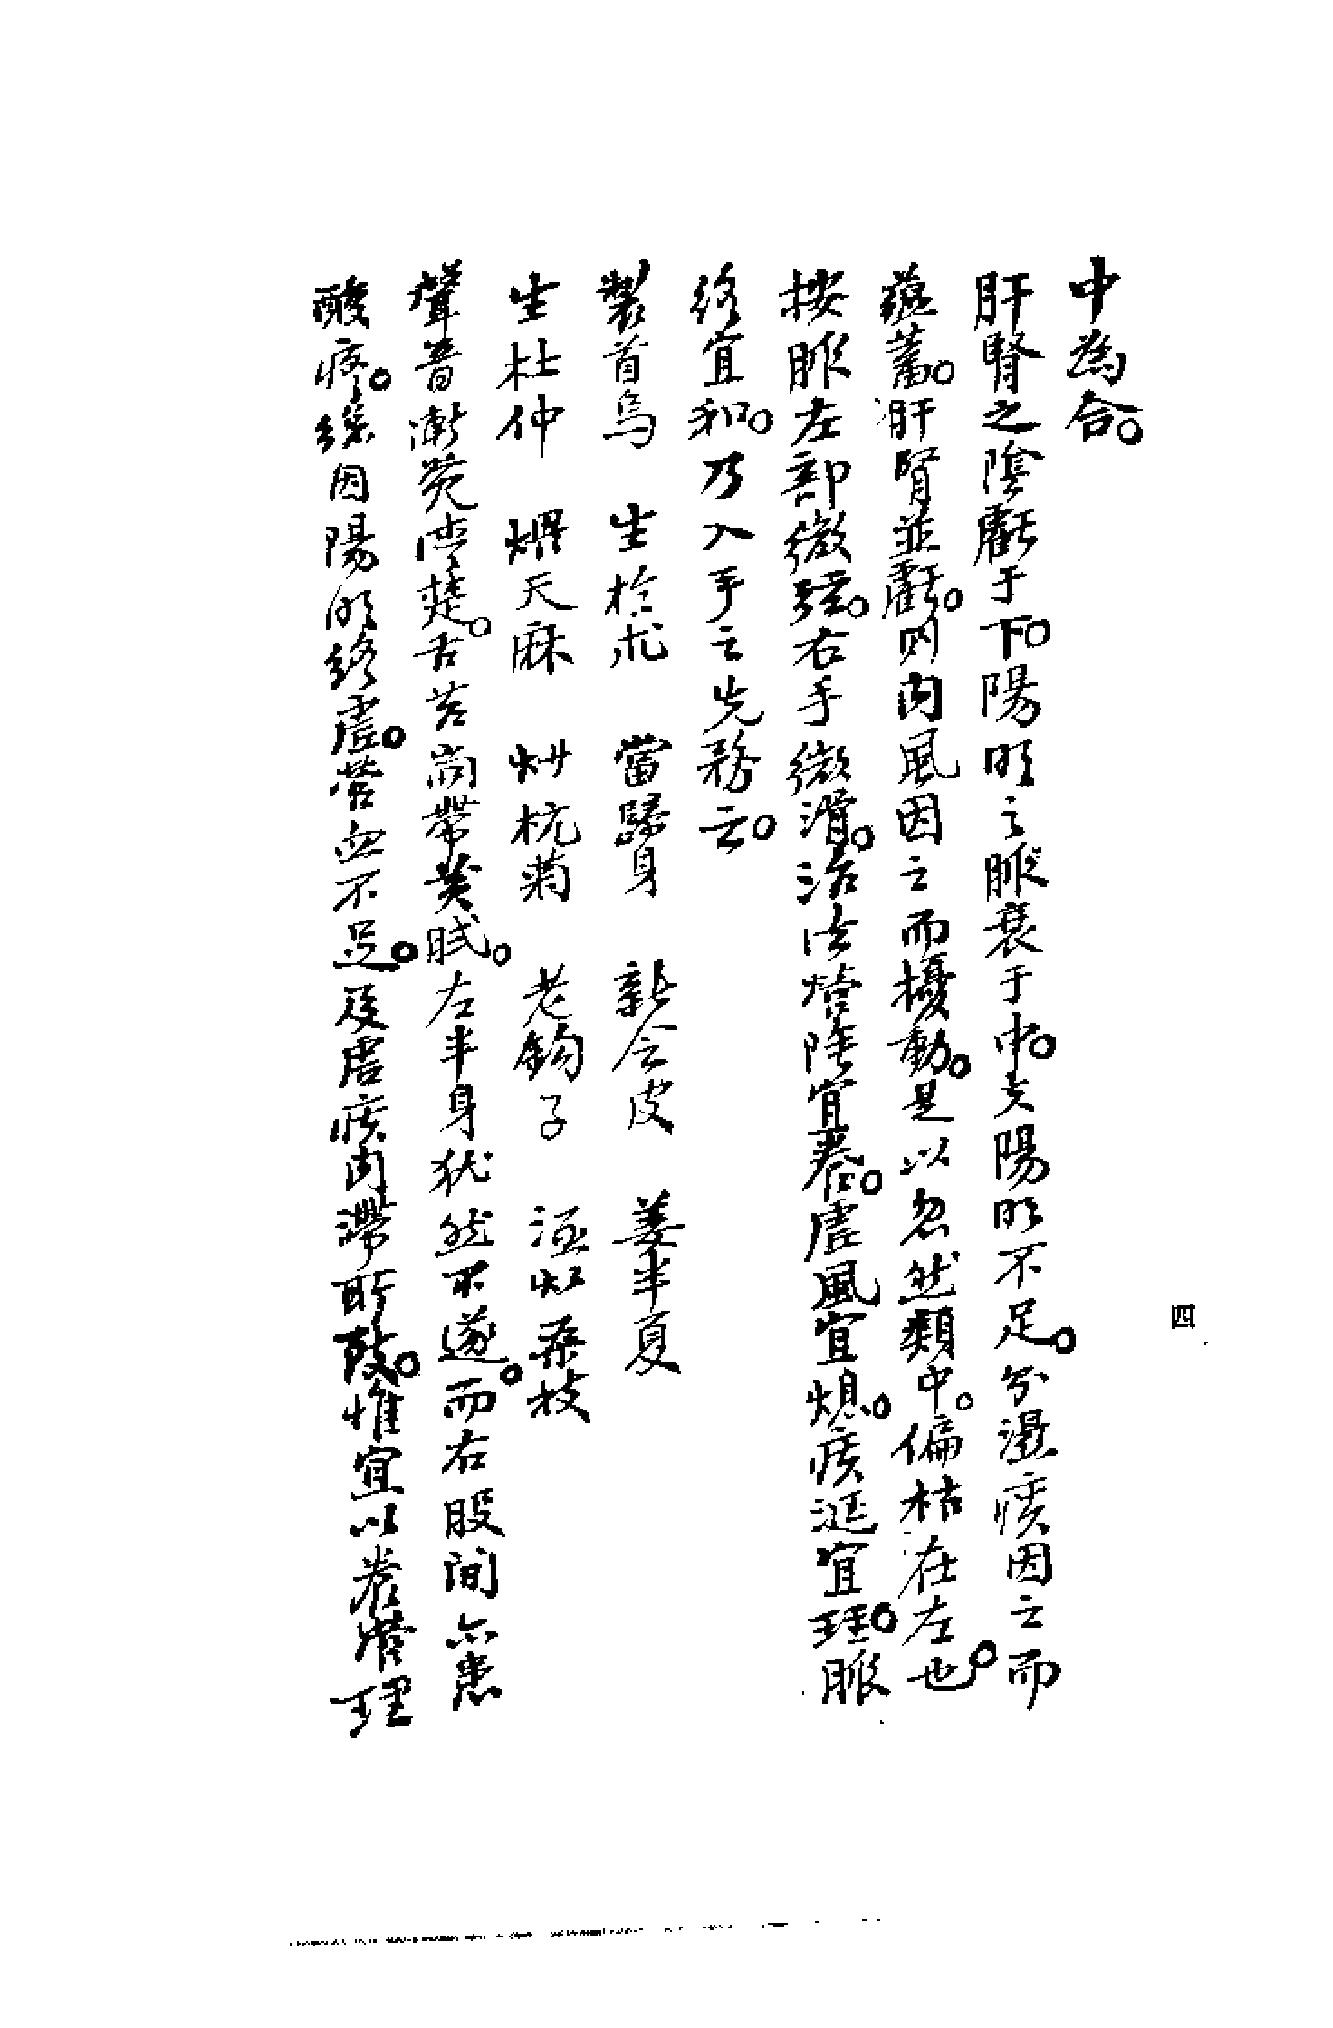 中為合。
肝腎之陰虧于下。陽明之脈衰于中。夫陽明不足。外濕痰因之而
蘊蓄。肝腎並虧。則內風因之而擾動。是以忽然類中。偏枯在左也。
按脈左部微弦。右手微滑。治法營陰宜養。虛風宜熄。痰涎宜理。脈
絡宜和。乃入手之先務云。
製首烏　生於朮　當歸身　新會皮　姜半夏
生杜仲　煨天麻　炒杭菊　老鉤子　酒炒桑枝
聲音漸覺清楚。舌苔尚帶黃膩。左半身猶然不遂。而右股間亦患
酸疼。總因陽明絡虛。營血不足。及虛痰內滯所致。惟宜以養營理
四